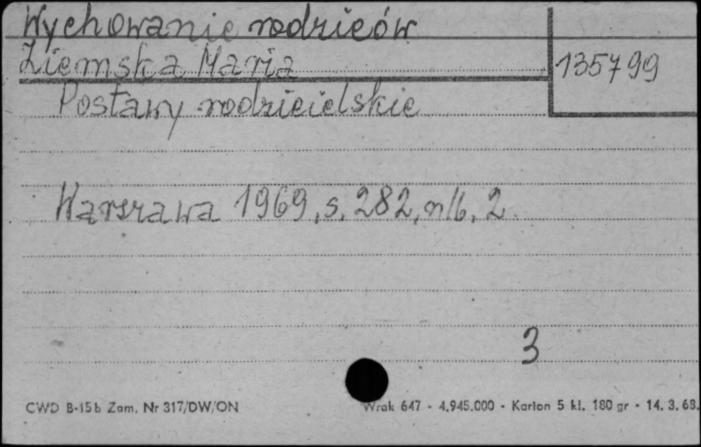 Wychowanie rodziców
Ziemska Maria
135799
Postawy rodzicielskie
Warszawa 1969, s. 282, nlb. 2.
3
CWD B-15b Zam. Nr 317/DW/ON
Wrak 647 - 4.945.000 - Karton 5 kl. 180 gr - 14. 3. 68.